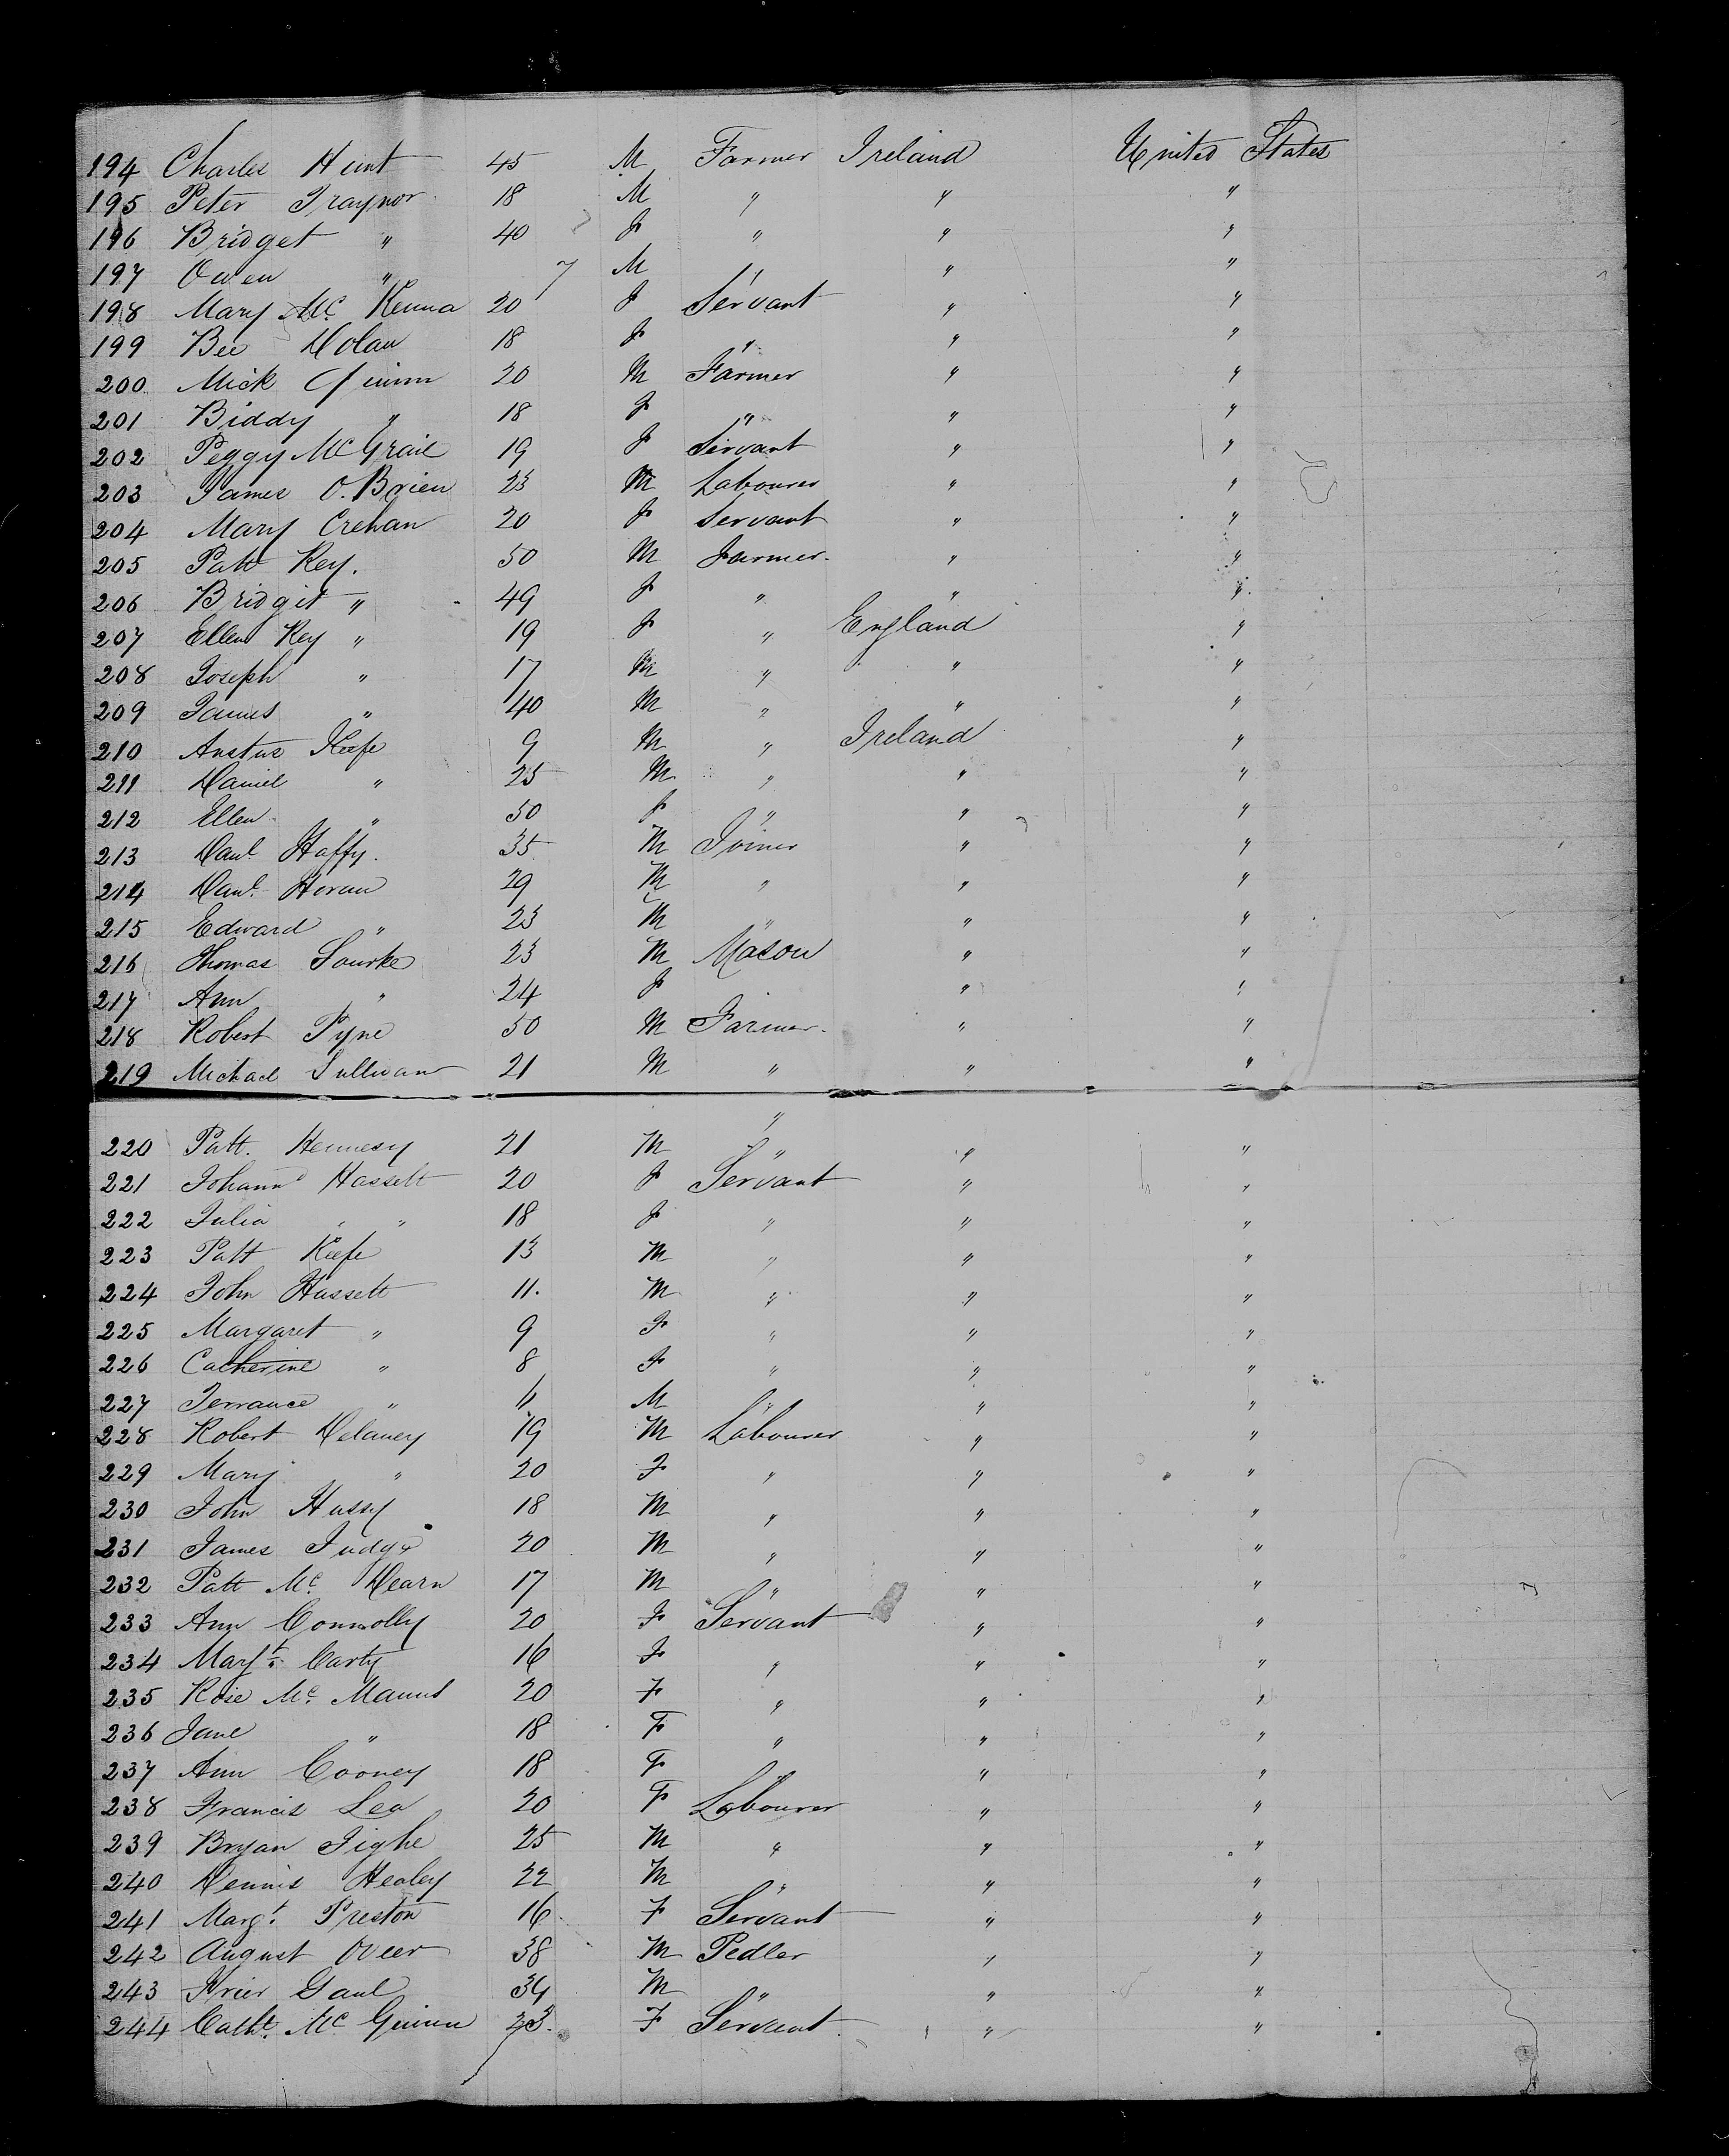 194 Charles Hunt 45 M Farmer Ireland United States
195 Peter Traynor 18 M " " "
196 Bridget " 40 F " " "
197 Owen " 7 M " " "
198 Mary Mc Kenna 20 F Servant " "
199 Bee Dolan 18 F " " "
200 Mick Quinn 20 M Farmer " "
201 Biddy " 18 F " " "
202 Peggy McGrail 19 F Servant " "
203 James O.Brien 23 M Labourer " "
204 Mary Crehan 20 F Servant " "
205 Patt Key. 50 M Farmer " "
206 Bridgit " 49 F " " "
207 Ellen Key " 19 F " England "
208 Joseph " 17 M " " "
209 James " 40 M " " "
210 Anstus Keefe 9 M " Ireland "
211 Daniel " 25 M " " "
212 Ellen " 50 F " " "
213 Danl. Haffy. 35 M Joiner " "
214 Danl. Horan 29 M " " "
215 Edward " 23 M " " "
216 Thomas Sourke 23 M Mason " "
217 Ann " 24 F " "
218 Robert Pyne 50 M Farmer " "
219 Michael Sullivan 21 M " " "
220 Patt. Hennesy 21 M " " "
221 Johanna Hassett 20 F Servant " "
222 Julia " 18 F " " "
223 Patt Keefe 13 M " " "
224 John Hassett 11. M " " "
225 Margaret " 9 F " " "
226 Catherine " 8 F " " "
227 Terrance " M " " "
228 Robert Delaney 19 M Labourer " "
229 Mary " 20 F " " "
230 John Hussy 18 M " " "
231 James Judge 20 M " " "
232 Patt Mc. Hearn 17 M " " "
233 Ann Connolly 20 F Servant " "
234 Margt. Carty 16 F " " "
235 Rose Mc. Manus 20 F " " "
236 Jane " 18 F " " "
237 Ann Cooney 18 F " " "
238 Francis Lea 20 F Labourer " "
239 Bryan Tighe 25 M " " "
240 Dennis Healey 22 M " " "
241 Margt. Preston 16 F Servant " "
242 August Oveer 38 M Pedler " "
243 Krier Gaul 34 M " " "
244 Catht. Mc Guinn 23. F Servant " "